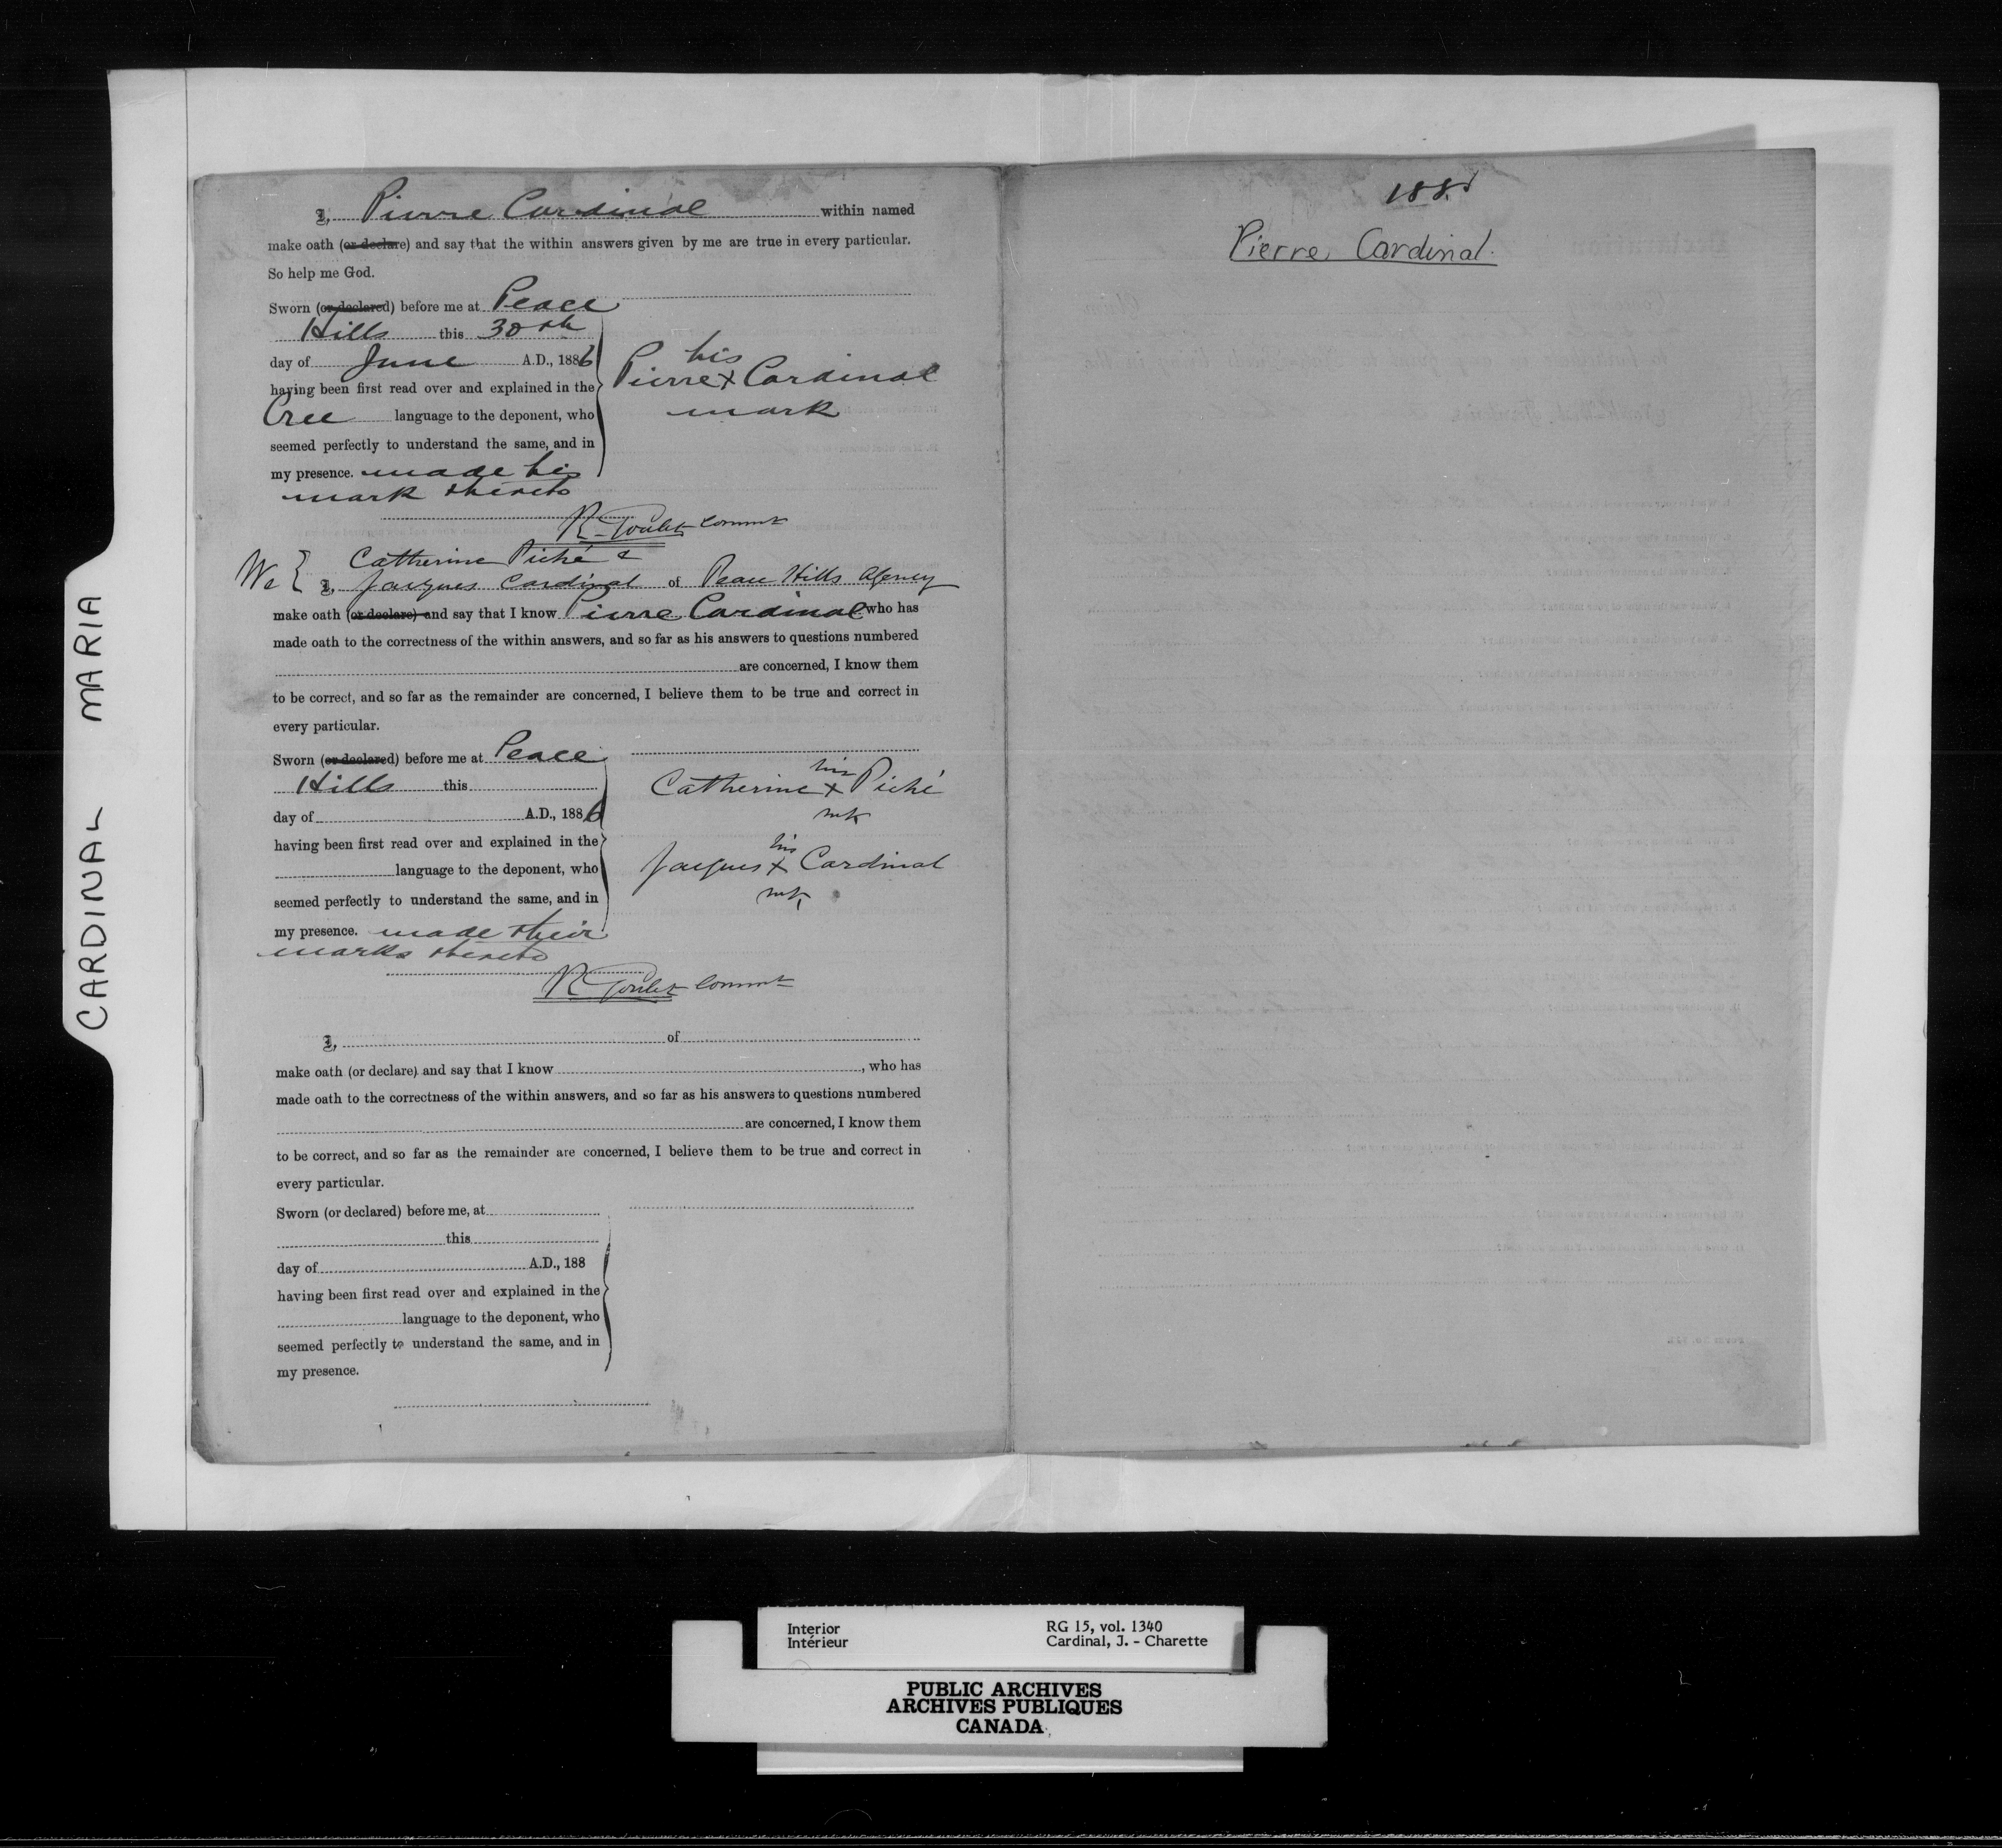 CARDINAL MARIA
I, Pierre Cardinal within named
make oath (or declare) and say that the within answers given by me are true in every particular.
So help me God.
Sworn (or declared) before me at Peace
Hills this 30th
day of June A.D., 1886
having been first read over and explained in the
Cree language to the deponent, who
seemed perfectly to understand the same, and in
my presence. made his
mark thereto
his
Pierre x Cardinal
mark
R. Goulet Commr
We { Catherine Piché &
I, Jacques Cardinal of Peace Hills Agency
make oath (or declare) and say that I know Pierre Cardinal who has
made oath to the correctness of the within answers, and so far as his answers to questions numbered
are concerned, I know them
to be correct, and so far as the remainder are concerned, I believe them to be true and correct in
every particular.
Sworn (or declared) before me at Peace
Hills this
day of A.D., 1886
having been first read over and explained in the
language to the deponent, who
seemed perfectly to understand the same, and in
my presence. made their
marks thereto
his
Catherine x Piché
mk
his
Jacques x Cardinal
mk
R Goulet Commr
I, of
make oath (or declare) and say that I know , who has
made oath to the correctness of the within answers, and so far as his answers to questions numbered
are concerned, I know them
to be correct, and so far as the remainder are concerned, I believe them to be true and correct in
every particular.
Sworn (or declared) before me, at
this
day of A.D., 188
having been first read over and explained in the
language to the deponent, who
seemed perfectly to understand the same, and in
my presence.
Pierre Cardinal.
Interior RG 15, vol. 1340
Intérieur Cardinal, J. - Charette
PUBLIC ARCHIVES
ARCHIVES PUBLIQUES
CANADA